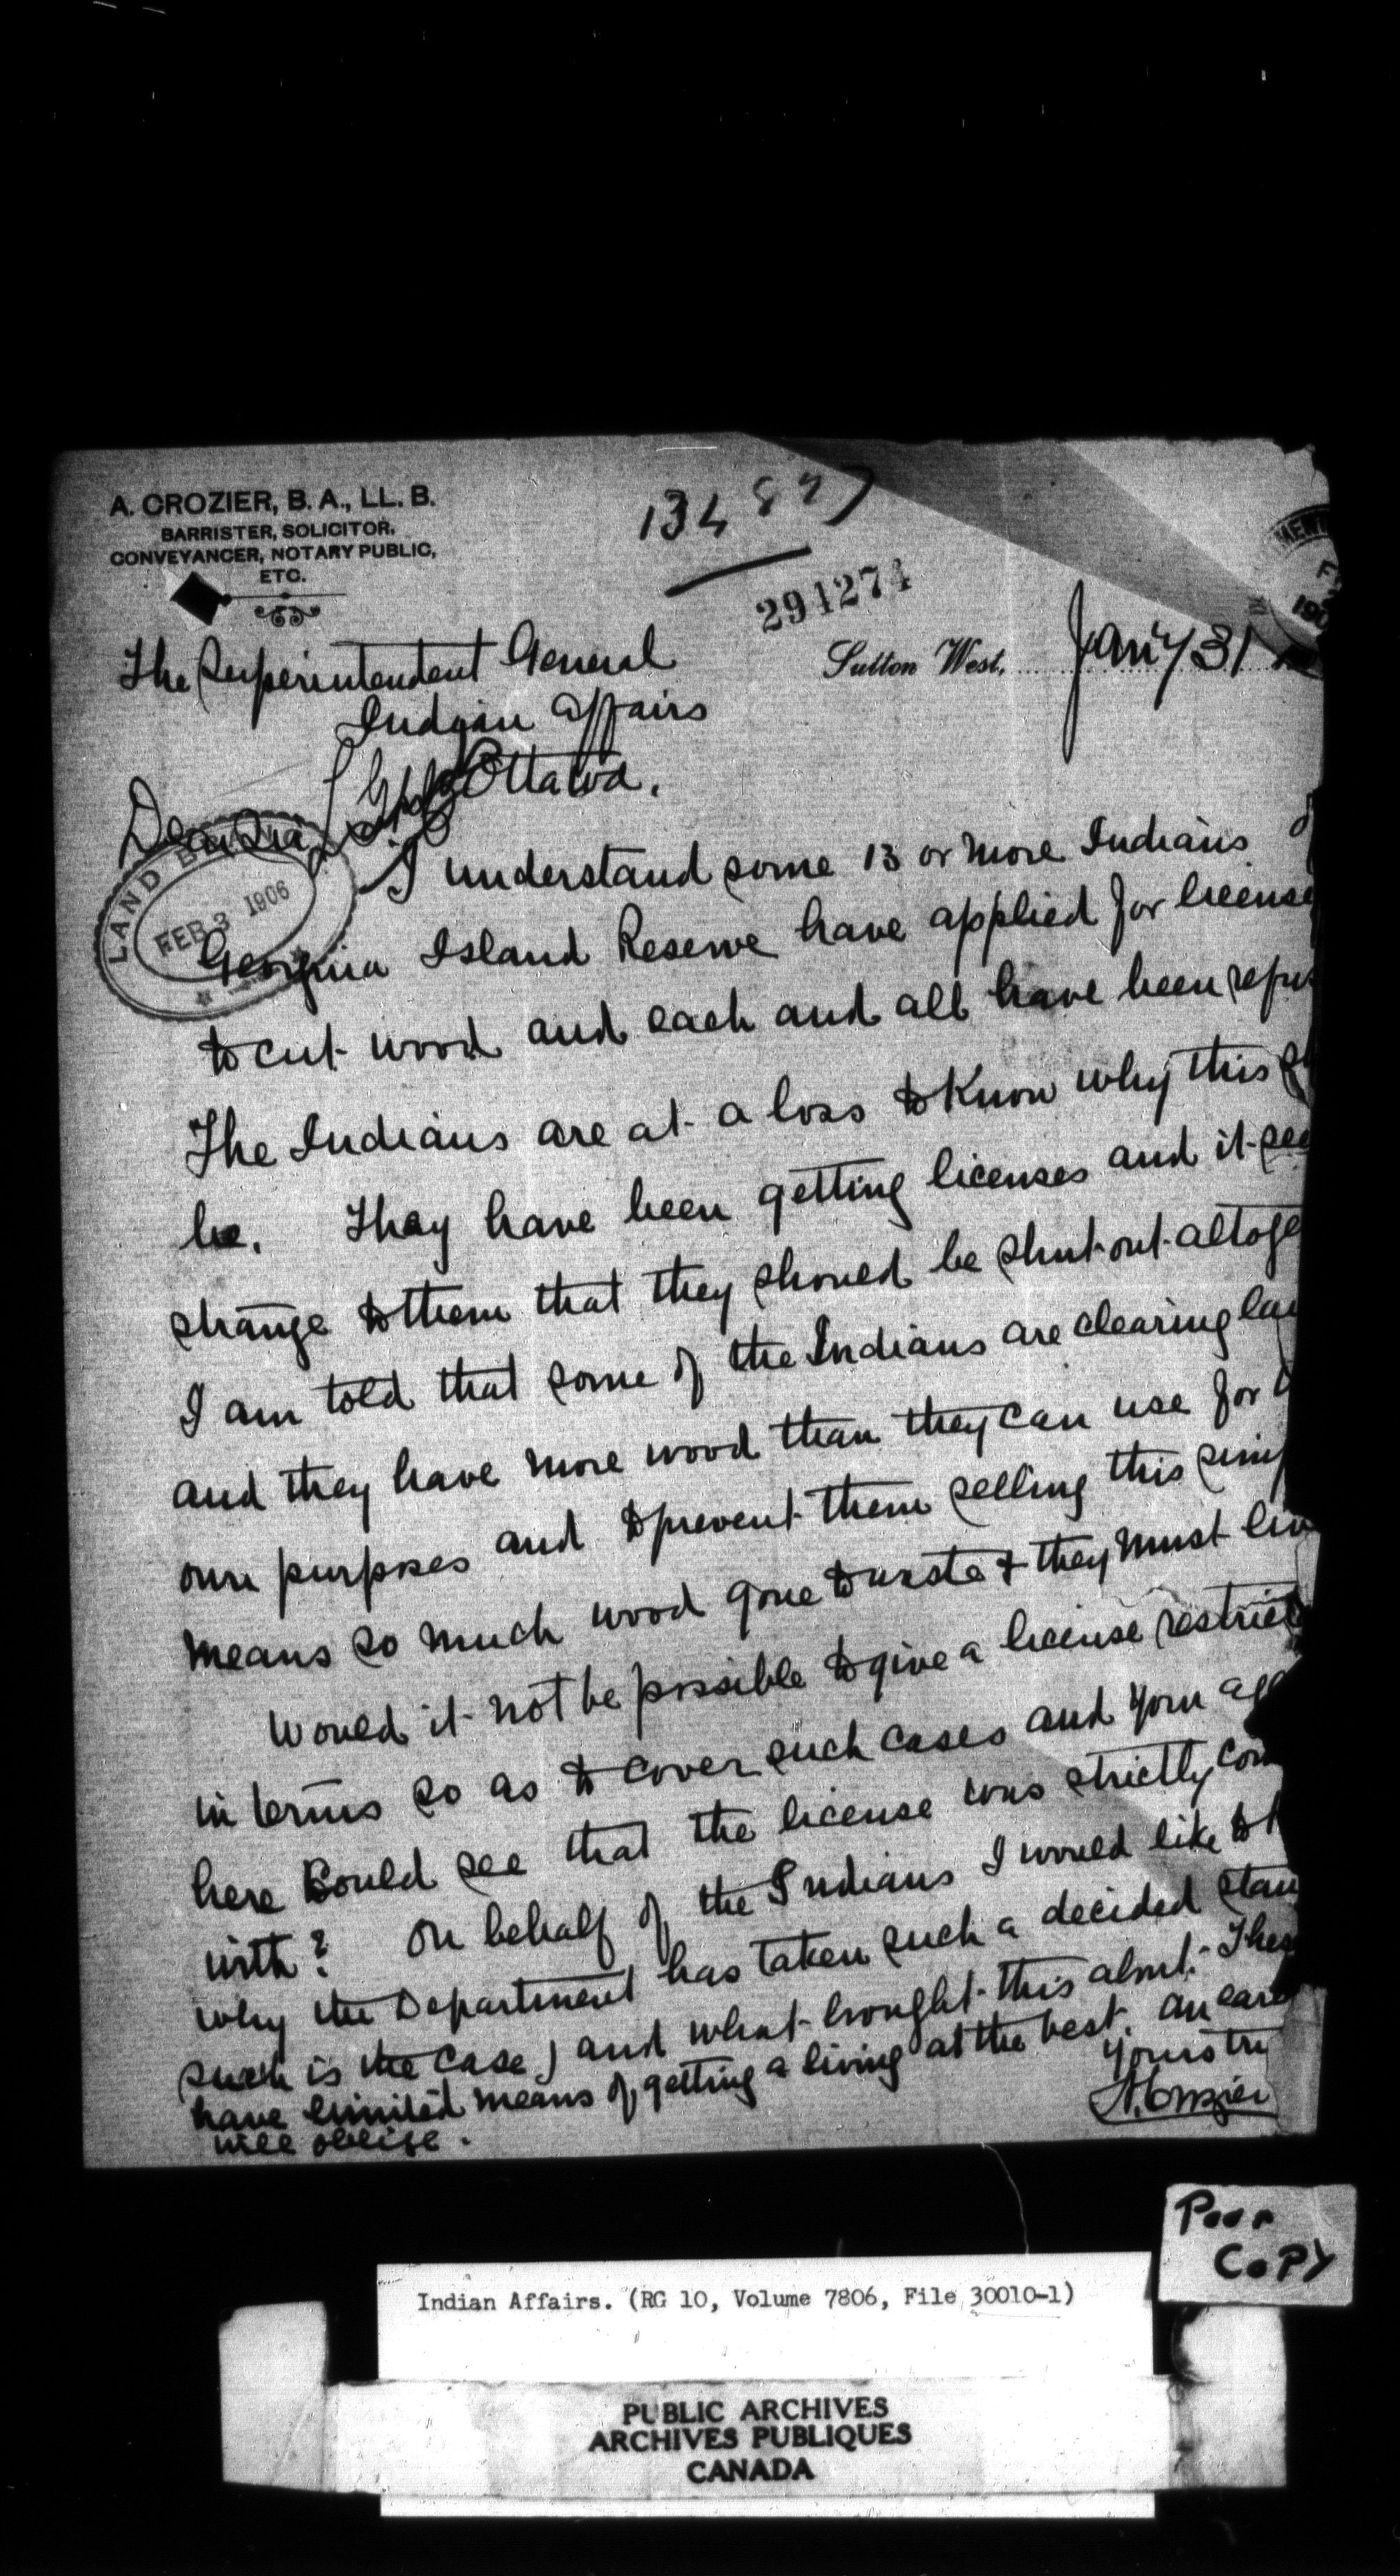 A. CROZIER, B. A., LL. B.
BARRISTER, SOLICITOR,
CONVEYANCER, NOTARY PUBLIC,
ETC.
291274
Sutton West, Jan'y 31
The Superintendent General
Indian Affairs
Ottawa.
Dear Sir,
LAND
FEB 3 1906
I understand some 13 or more Indians
Georgina Island Reserve have applied for license
to cut wood and each and all have been refu
The Indians are at a loss to know why this
be. They have been getting licenses and it see
strange to them that they should be shut out altoge
I am told that some of the Indians are clearing lan
and they have more wood than they can use for
own purposes and to prevent them selling this simp
means so much wood gone to waste & they must liv
Would it not be possible to give a license restrict
in terms so as to cover such cases and your ag
here could see that the license was strictly com
with? On behalf of the Indians I would like to k
why the Department has taken such a decided stan
such is the case) and what brought this about. Thes
have limited means of getting a living at the best. An ear
will oblige.
Yours tru
A. Crozier
Poor
Copy
Indian Affairs. (RG 10, Volume 7806, File 30010-1)
PUBLIC ARCHIVES
ARCHIVES PUBLIQUES
CANADA